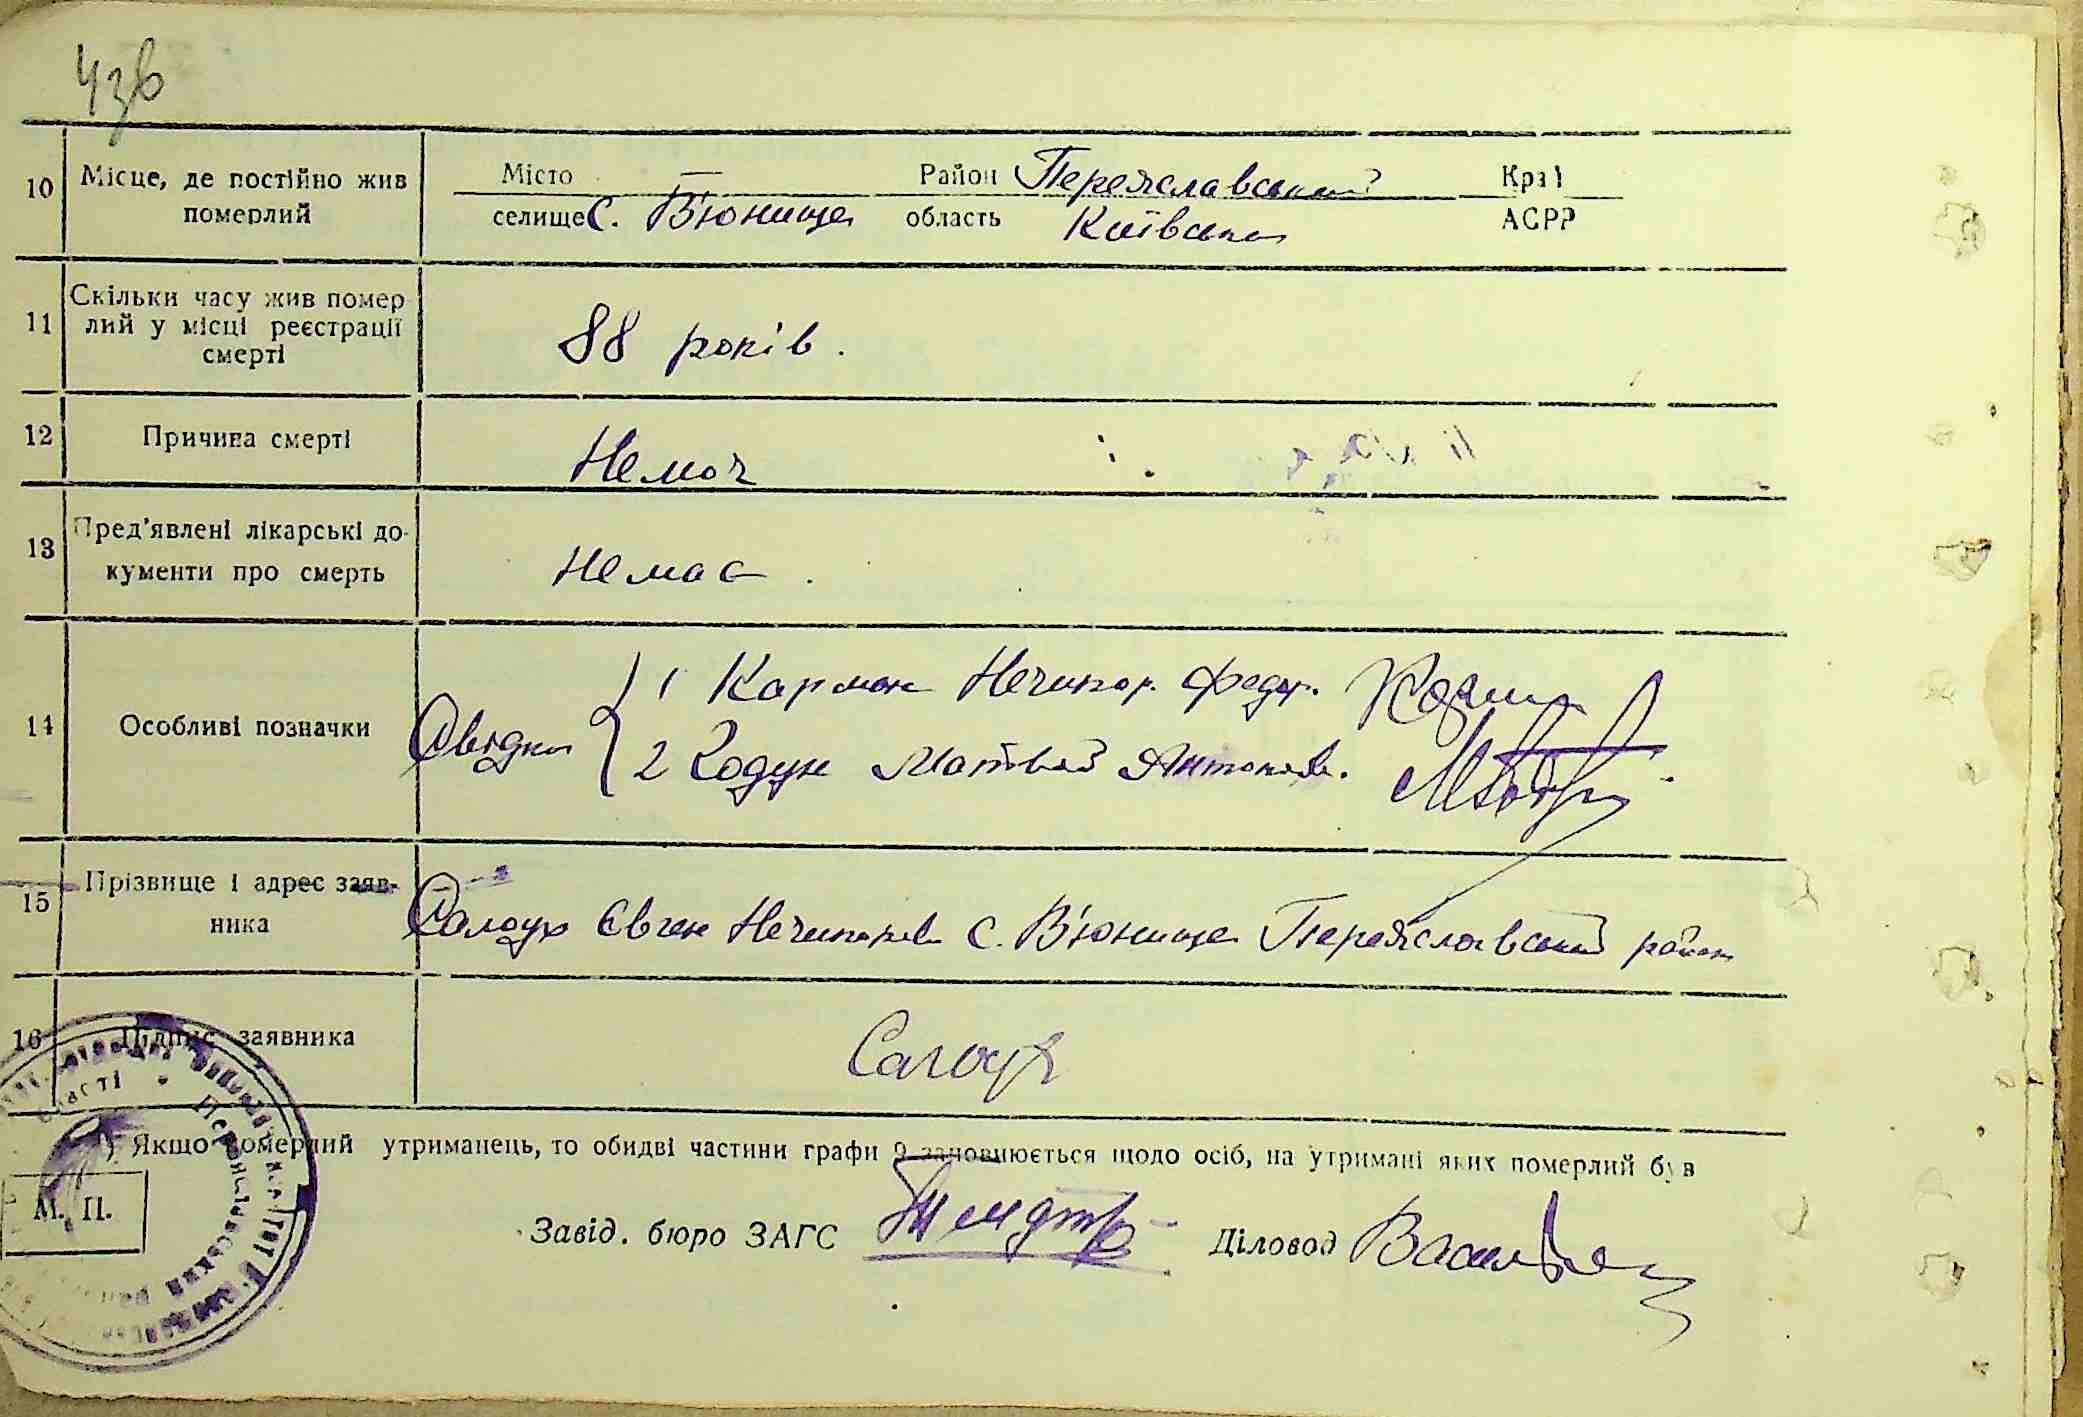 43в
10 Місце, де постійно жив померлий
Місто — Район Переяславський Край
селище с. В'юнище область Київська АСРР
11 Скільки часу жив помер
лий у місці реєстрації
смерті
88 років.
12 Причина смерті Немоч
13 Пред'явлені лікарські до-
кументи про смерть
Немає.
14 Особливі позначки Свідки
1 Карман Нечипор. Федор.
2 Ходун Матвей Антонов.
15 Прізвище і адрес заяв-
ника
Салоух Євген Нечипоров с. В'юнище Переяславський район
16 Підпис заявника
області
) Якщо померлий утриманець, то обидві частини графи 9 заповнюється щодо осіб, на утримані яких померлий був
М. П.
Завід. бюро ЗАГС Діловод